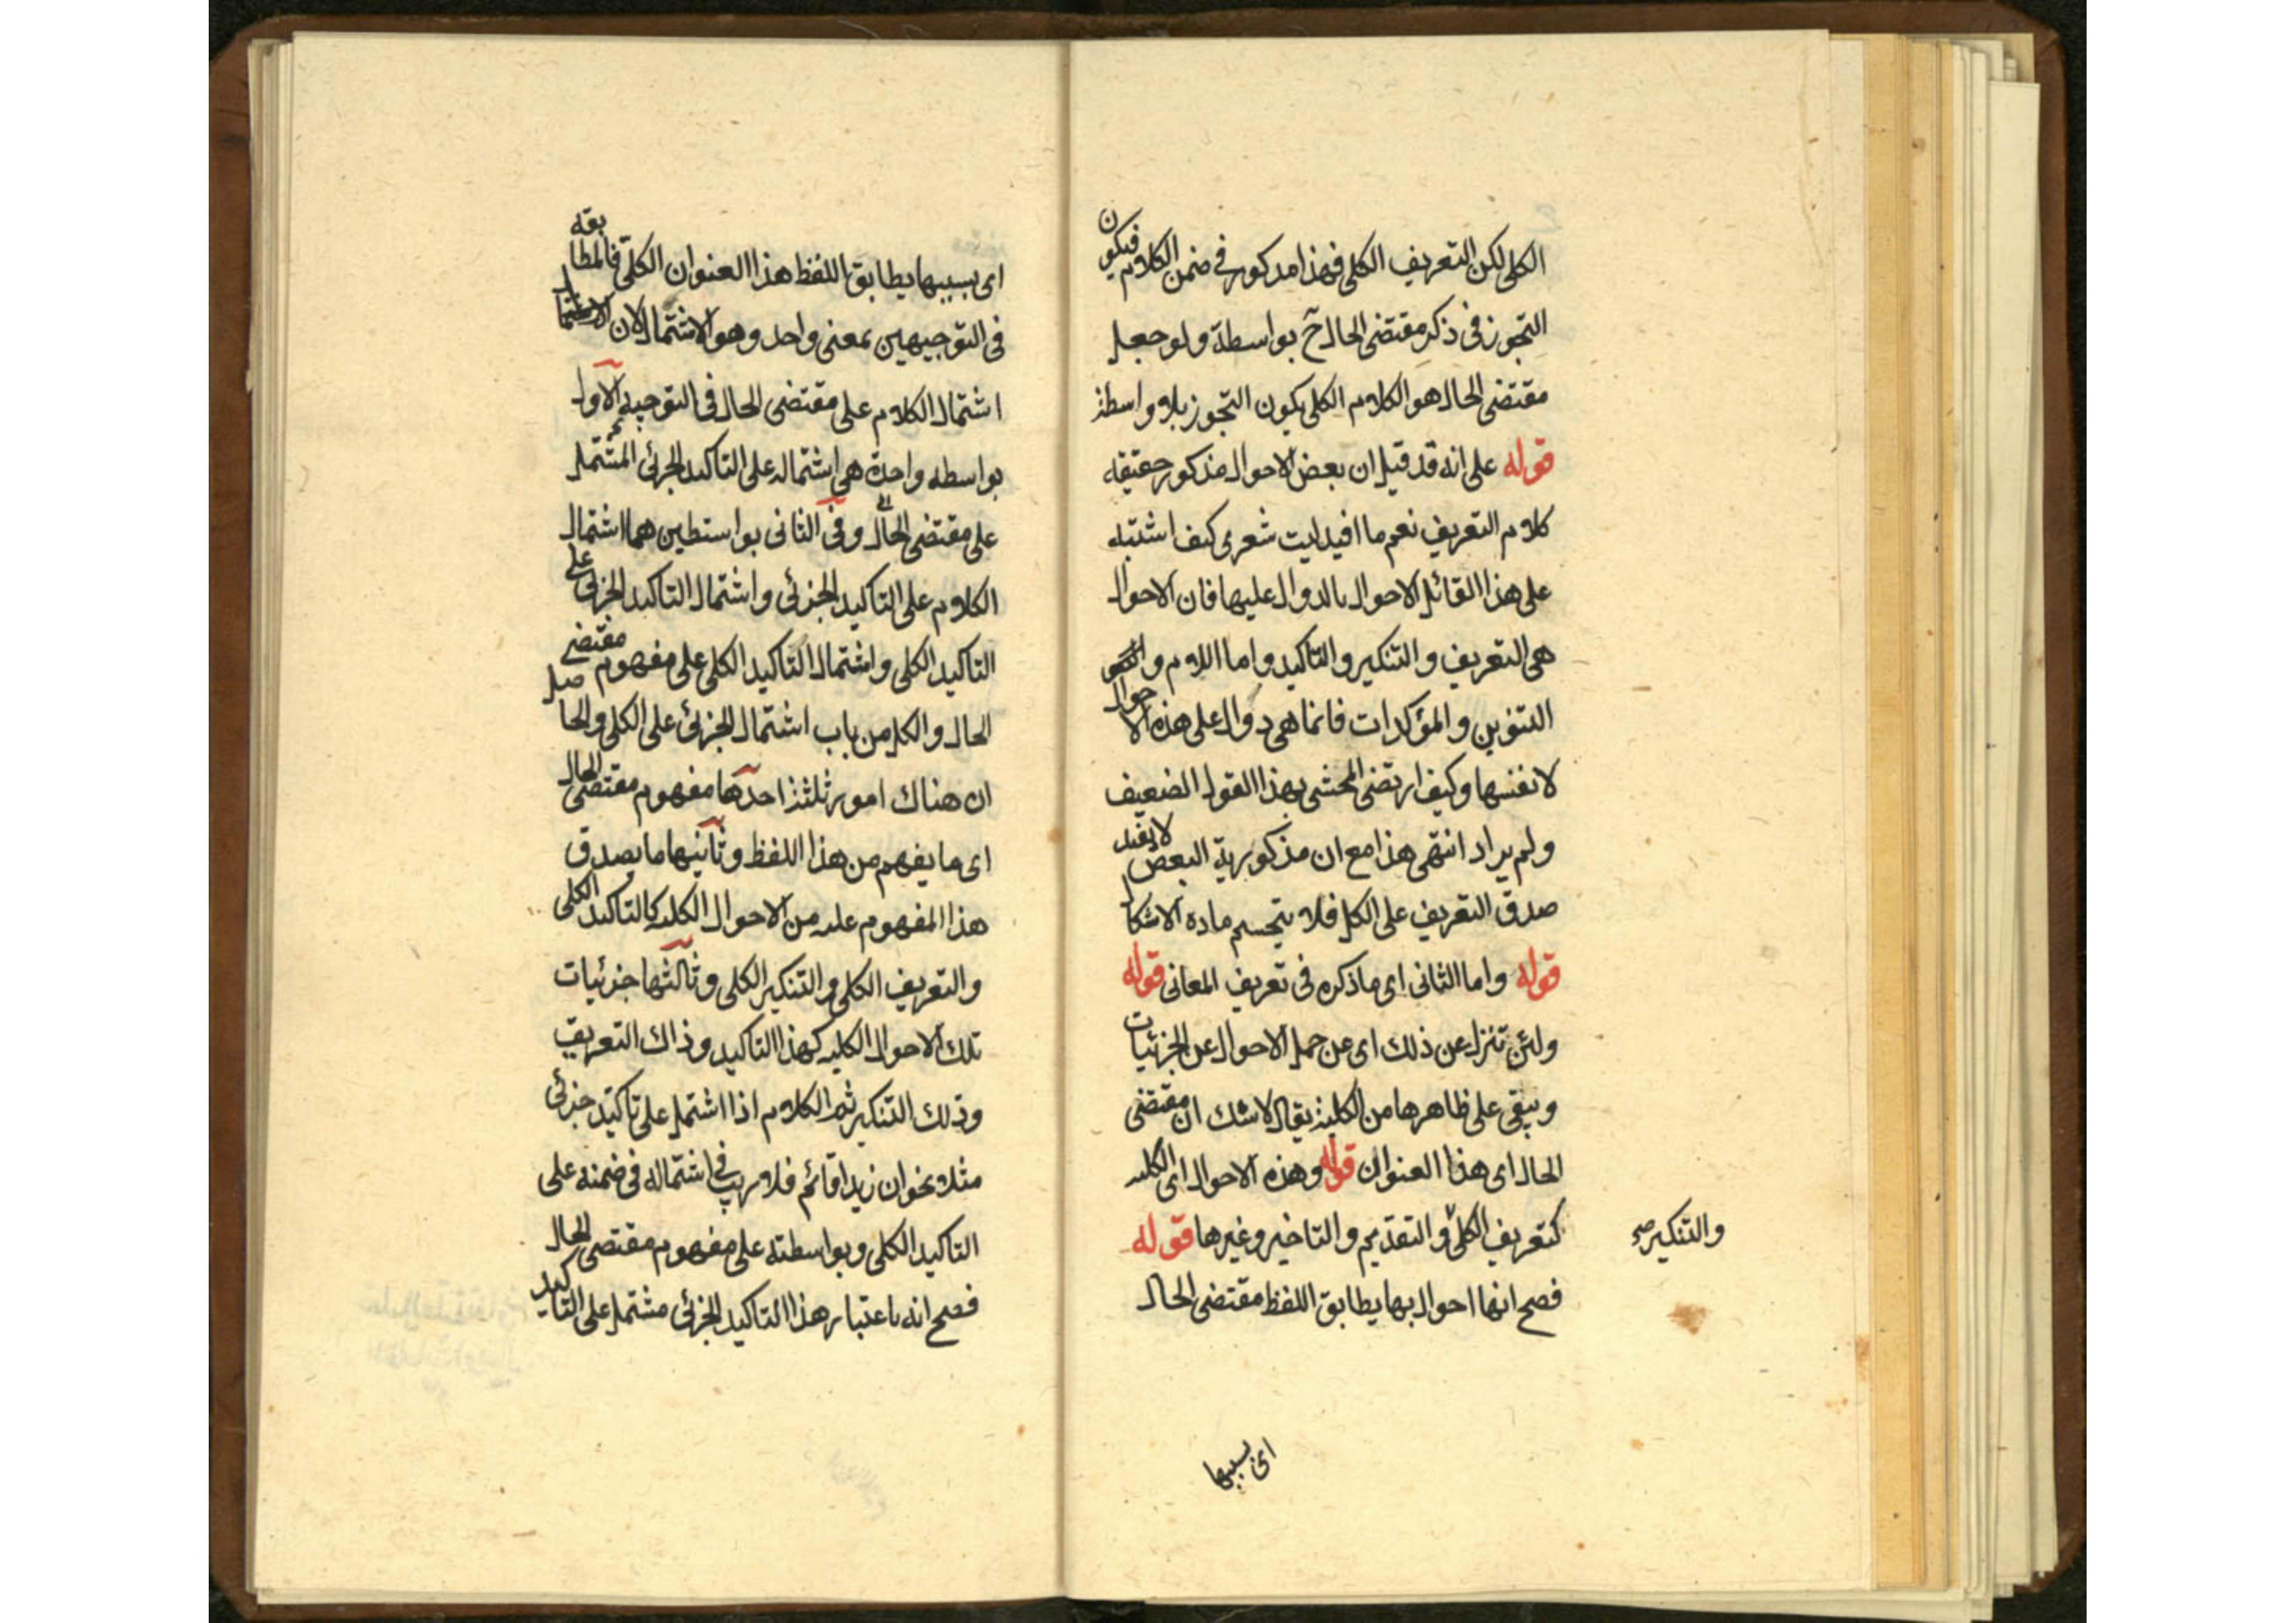 الكلى لكن التعريف الكلى فهذا مذكور فى ضمن الكلام فيكون
التجوز فى ذكر مقتضى الحال ح بواسطة ولو جعل
مقتضى الحال هو الكلام الكلى يكون التجوز بلا واسطة
قوله على انه قد قيل ان بعض الاحوال مذكور حقيقه
كلام التعريف نعم ما افيد ليت شعرى كيف اشتبه
على هذا القائل الاحوال بالدوال عليها فان الاحوال
هى التعريف والتنكير والتاكيد واما اللام و
التنوين والمؤكدات فانما هى دوال على هذه الاحوال
لا نفسها وكيف ارتضى المحشى بهذا القول الضعيف
ولم يراد انتهى هذا مع ان مذكورية البعض لا يفيد
صدق التعريف على الكل فلا يتحسم ماده الاشكال
قوله واما الثانى اى ما ذكره فى تعريف المعانى قوله
ولئن تنزل عن ذلك اى عن حمل الاحوال عن الجزئيات
ويبقى على ظاهرها من الكلية يقال لاشك ان مقتضى
الحال اى هذا العنوان قوله وهذه الاحوال اى الكليه
كتعريف الكلى والتقديم والتاخير وغيرها قوله
والتنكير صح
فصح انها احوال بها يطابق اللفظ مقتضى الحال
اى بسببها
اى بسببها يطابق اللفظ هذا العنوان الكلى فالمطابقه
فى التوجيهين بمعنى واحد وهو الاشتمال لان
اشتمال الكلام على مقتضى الحال فى التوجيه الاول
بواسطه واحدة هى اشتماله على التاكيد الجزئى المشتمل
على مقتضى الحال وفى الثانى بواسطتين هما اشتمال
الكلام على التاكيد الجزئى واشتمال التاكيد الجزئى على
التاكيد الكلى واشتمال التاكيد الكلى على مفهوم مقتضى
الحال والكل من باب اشتمال الجزئى على الكلى والحاصل
ان هناك امور ثلثة احدها مفهوم مقتضى الحال
اى ما يفهم من هذا اللفظ وثانيها ما يصدق
هذا المفهوم عليه من الاحوال الكليه كالتاكيد الكلى
والتعريف الكلى والتنكير الكلى وثالثها جزئيات
تلك الاحوال الكليه كهذا التاكيد وذاك التعريف
وذلك التنكير ثم الكلام اذا اشتمل على تاكيد جزئى
مثلا نحو ان زيدا قائم فلا ريب فى اشتماله فى ضمنه على
التاكيد الكلى وبواسطته على مفهوم مقتضى الحال
فصح انه باعتبار هذا التاكيد الجزئى مشتمل على التاكيد